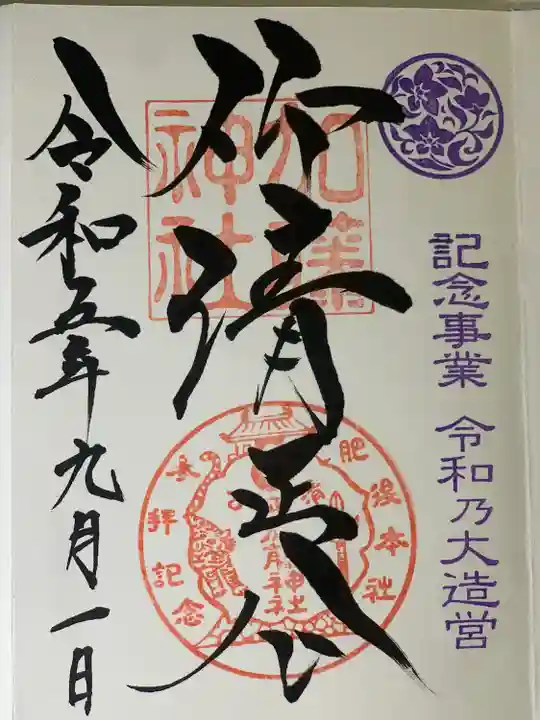 記念事業 令和乃大造営
清正公
加藤
神社
肥後本社
参拝記念
加藤神社
令和五年九月一日